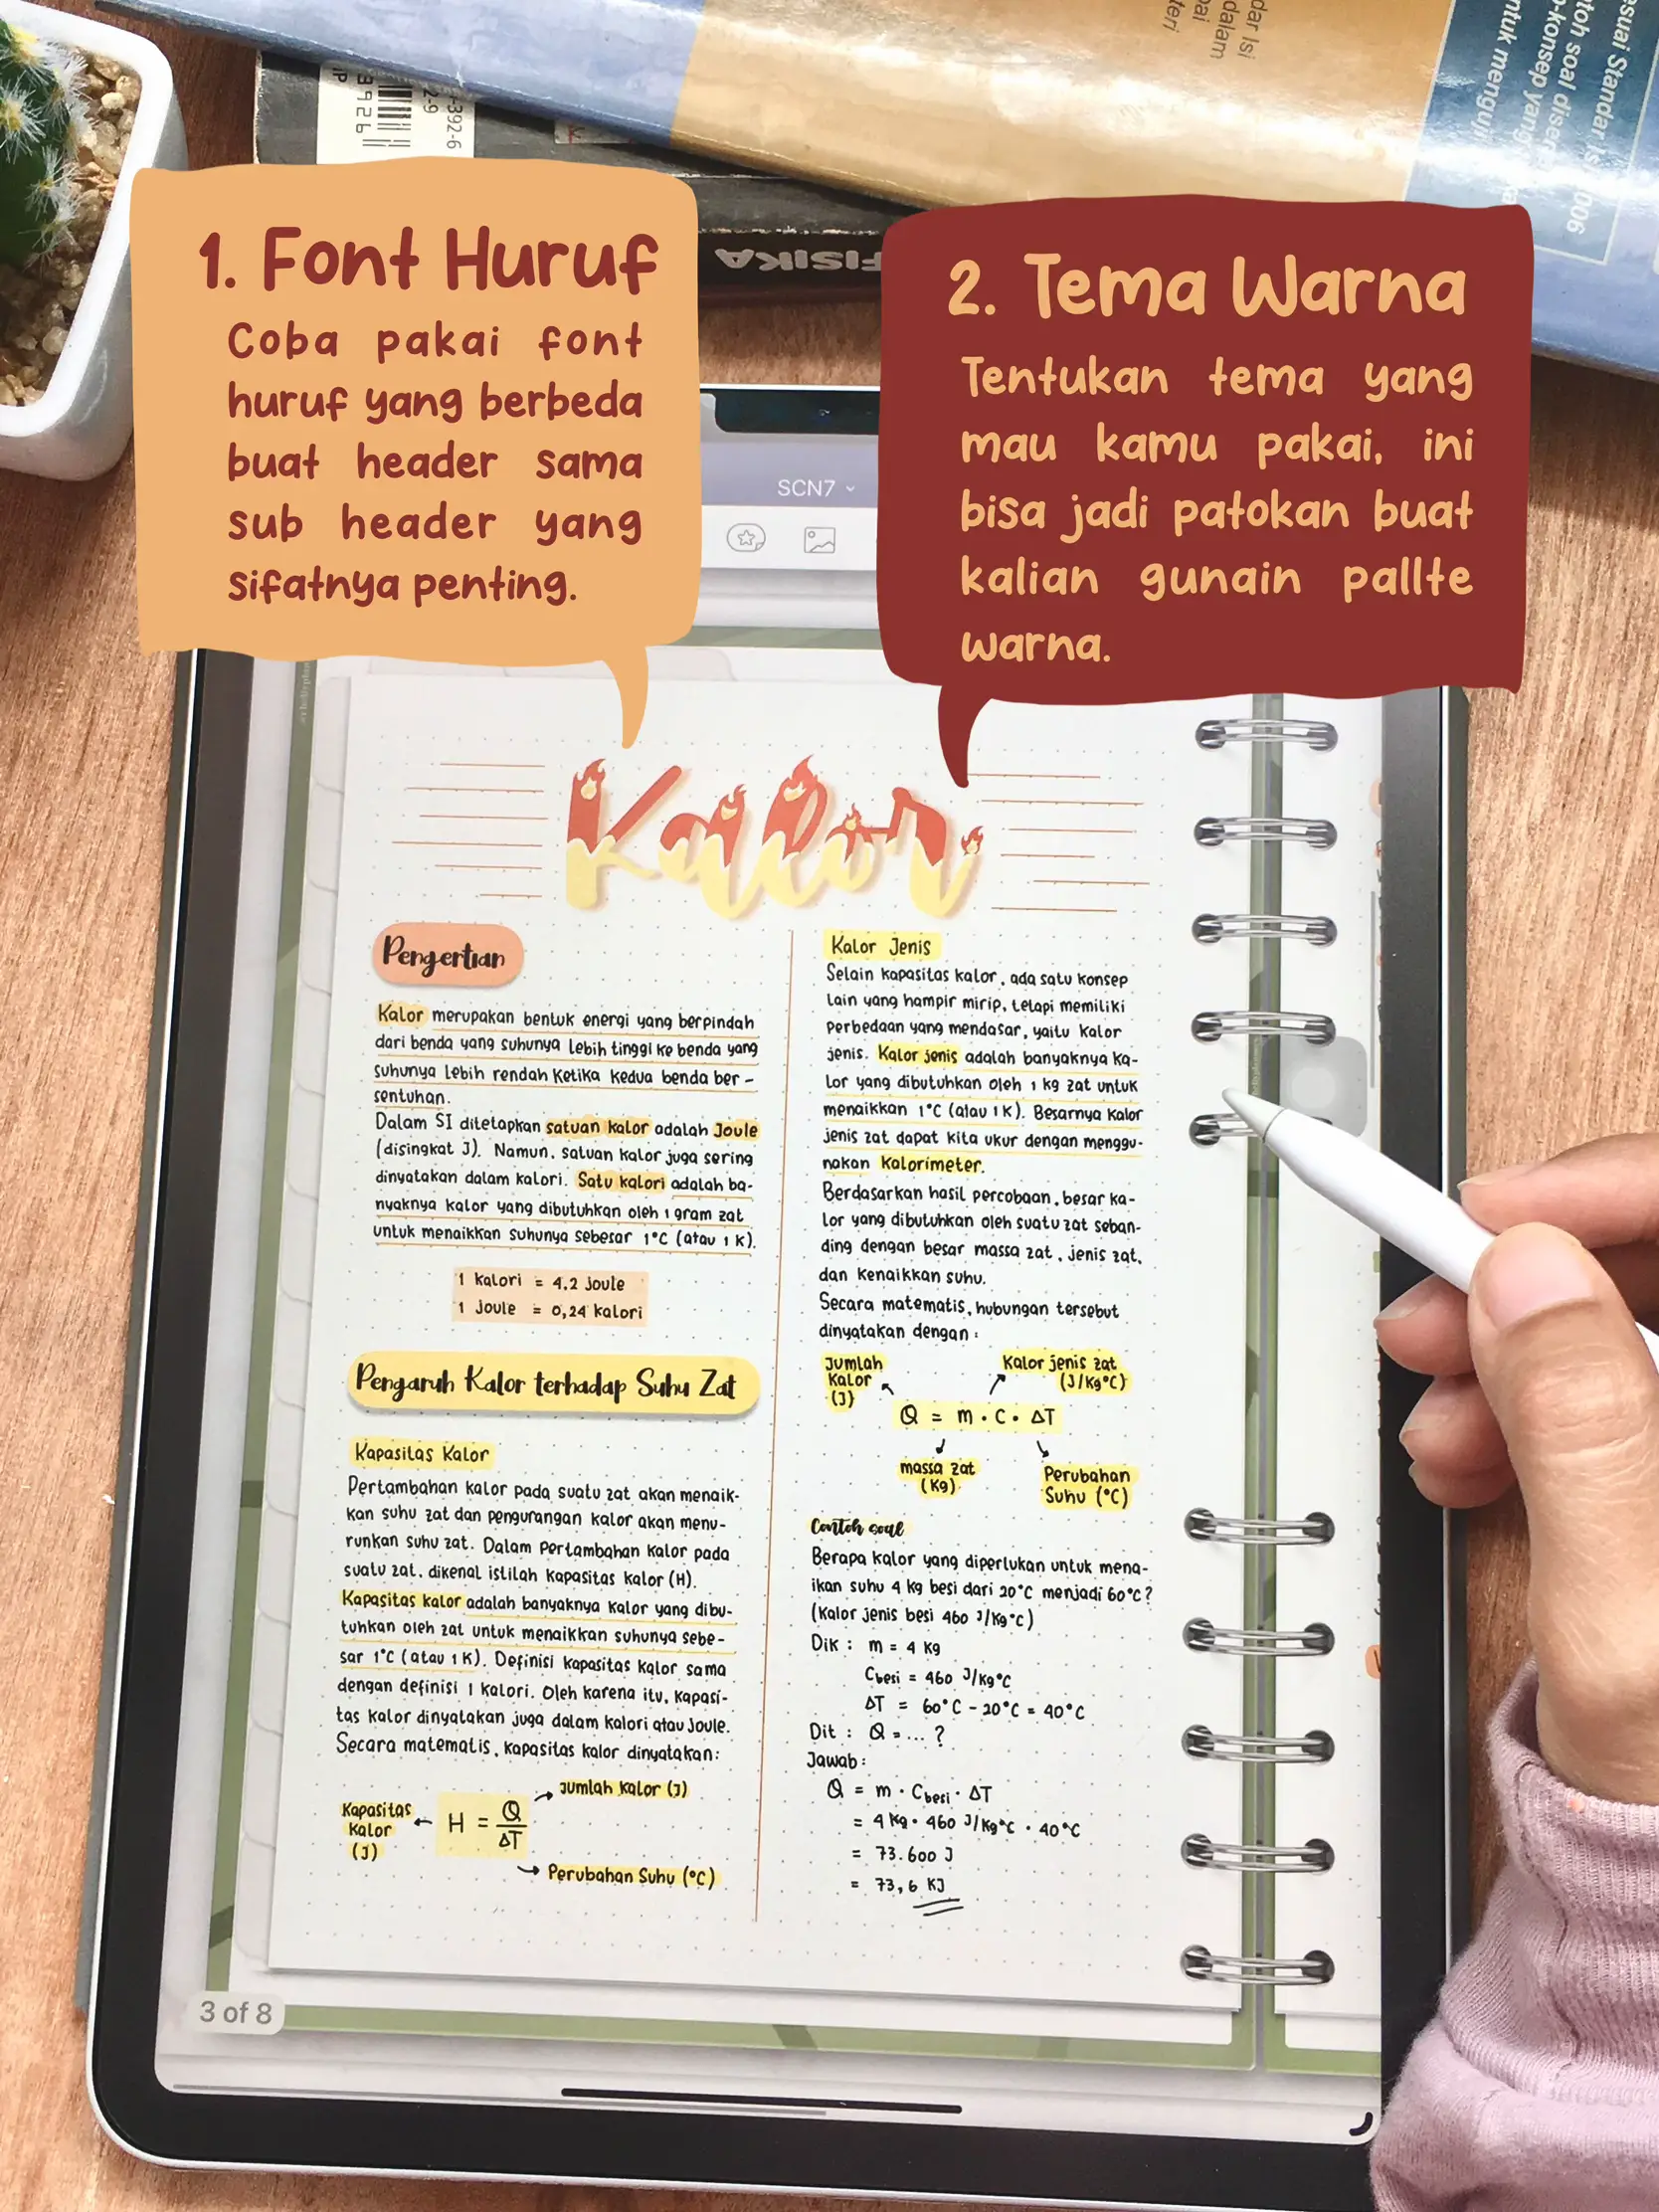 1. Font Huruf
Coba pakai font
huruf yang berbeda
buat header sama
sub header yang
sifatnya penting.
2. Tema Warna
Tentukan tema yang
mau kamu pakai, ini
bisa jadi patokan buat
kalian gunain pallte
warna.
FISIKA
SCN7
Kalor
Pengertian
Kalor merupakan bentuk energi yang berpindah
dari benda yang suhunya lebih tinggi ke benda yang
suhunya lebih rendah ketika kedua benda ber-
sentuhan.
Dalam SI ditetapkan satuan kalor adalah Joule
(disingkat J). Namun, satuan kalor juga sering
dinyatakan dalam kalori. Satu kalori adalah ba-
nyaknya kalor yang dibutuhkan oleh 1 gram zat
untuk menaikkan suhunya sebesar 1°C (atau 1 K).
1 kalori = 4,2 Joule
1 Joule = 0,24 kalori
Pengaruh Kalor terhadap Suhu Zat
Kapasitas Kalor
Pertambahan kalor pada suatu zat akan menaik-
kan suhu zat dan pengurangan kalor akan menu-
runkan suhu zat. Dalam pertambahan kalor pada
suatu zat, dikenal istilah kapasitas kalor (H).
Kapasitas kalor adalah banyaknya kalor yang dibu-
tuhkan oleh zat untuk menaikkan suhunya sebe-
sar 1°C (atau 1 K). Definisi kapasitas kalor sama
dengan definisi 1 kalori. Oleh karena itu, kapasi-
tas kalor dinyatakan juga dalam kalori atau Joule.
Secara matematis, kapasitas kalor dinyatakan:
Jumlah Kalor (J)
Kapasitas
Kalor
(J)
H = Q/ΔT
Perubahan Suhu (°C)
Kalor Jenis
Selain kapasitas kalor, ada satu konsep
lain yang hampir mirip, tetapi memiliki
perbedaan yang mendasar, yaitu kalor
jenis. Kalor jenis adalah banyaknya ka-
lor yang dibutuhkan oleh 1 kg zat untuk
menaikkan 1°C (atau 1 K). Besarnya kalor
jenis zat dapat kita ukur dengan menggu-
nakan kalorimeter.
Berdasarkan hasil percobaan, besar ka-
lor yang dibutuhkan oleh suatu zat seban-
ding dengan besar massa zat, jenis zat,
dan kenaikkan suhu.
Secara matematis, hubungan tersebut
dinyatakan dengan:
Jumlah
Kalor
(J)
Kalor jenis zat
(J/kg°C)
Q = m · C · ΔT
massa zat
(kg)
Perubahan
Suhu (°C)
Contoh soal
Berapa kalor yang diperlukan untuk mena-
ikan suhu 4 kg besi dari 20°C menjadi 60°C?
(kalor jenis besi 460 J/kg°C)
Dik : m = 4 kg
Cbesi = 460 J/kg°C
ΔT = 60°C - 20°C = 40°C
Dit : Q = ... ?
Jawab :
Q = m · Cbesi · ΔT
= 4 kg · 460 J/kg°C · 40°C
= 73.600 J
= 73,6 KJ
3 of 8